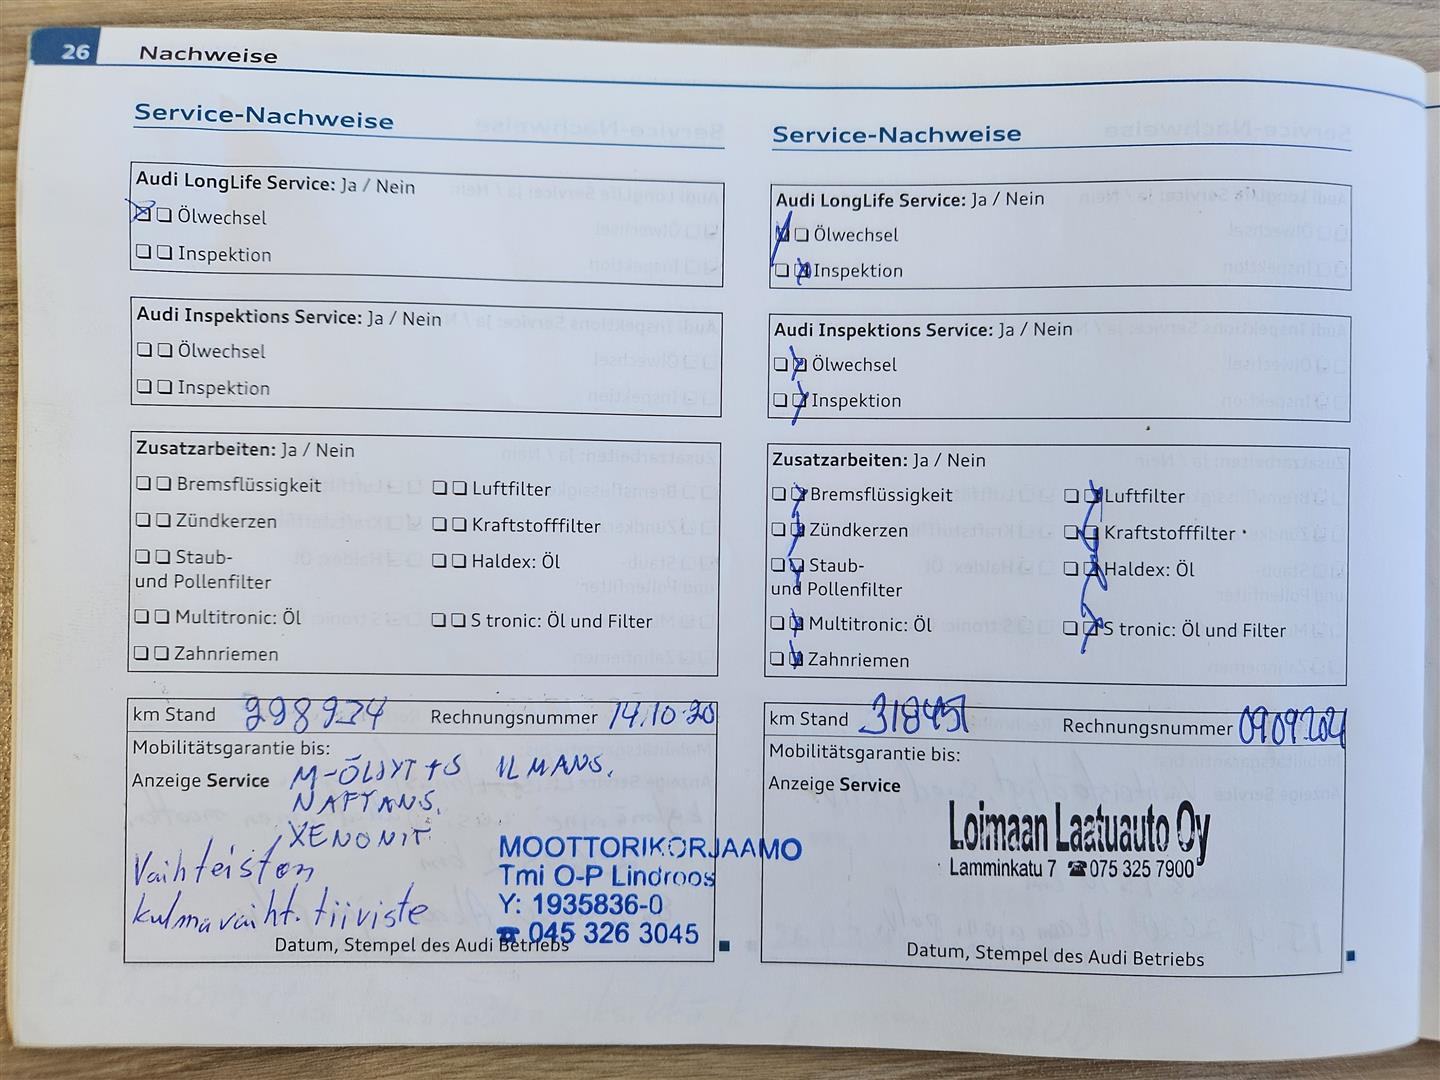 26 Nachweise
Service-Nachweise
Audi LongLife Service: Ja / Nein
Ölwechsel
Inspektion
Audi Inspektions Service: Ja / Nein
Ölwechsel
Inspektion
Zusatzarbeiten: Ja / Nein
Bremsflüssigkeit
Luftfilter
Zündkerzen
Kraftstofffilter
Staub-
und Pollenfilter
Haldex: Öl
Multitronic: Öl
S tronic: Öl und Filter
Zahnriemen
km Stand 298934 Rechnungsnummer 14.10.20
Mobilitätsgarantie bis:
Anzeige Service M-ÖLJYT+S ILMANS.
NAFTANS.
XENONIT
Vaihteiston
kulmavaiht. tiiviste
MOOTTORIKORJAAMO
Tmi O-P Lindroos
Y: 1935836-0
☎ 045 326 3045
Datum, Stempel des Audi Betriebs
Service-Nachweise
Audi LongLife Service: Ja / Nein
Ölwechsel
Inspektion
Audi Inspektions Service: Ja / Nein
Ölwechsel
Inspektion
Zusatzarbeiten: Ja / Nein
Bremsflüssigkeit
Luftfilter
Zündkerzen
Kraftstofffilter
Staub-
und Pollenfilter
Haldex: Öl
Multitronic: Öl
S tronic: Öl und Filter
Zahnriemen
km Stand 318451 Rechnungsnummer
Mobilitätsgarantie bis:
Anzeige Service
Loimaan Laatuauto Oy
Lamminkatu 7 ☎ 075 325 7900
Datum, Stempel des Audi Betriebs